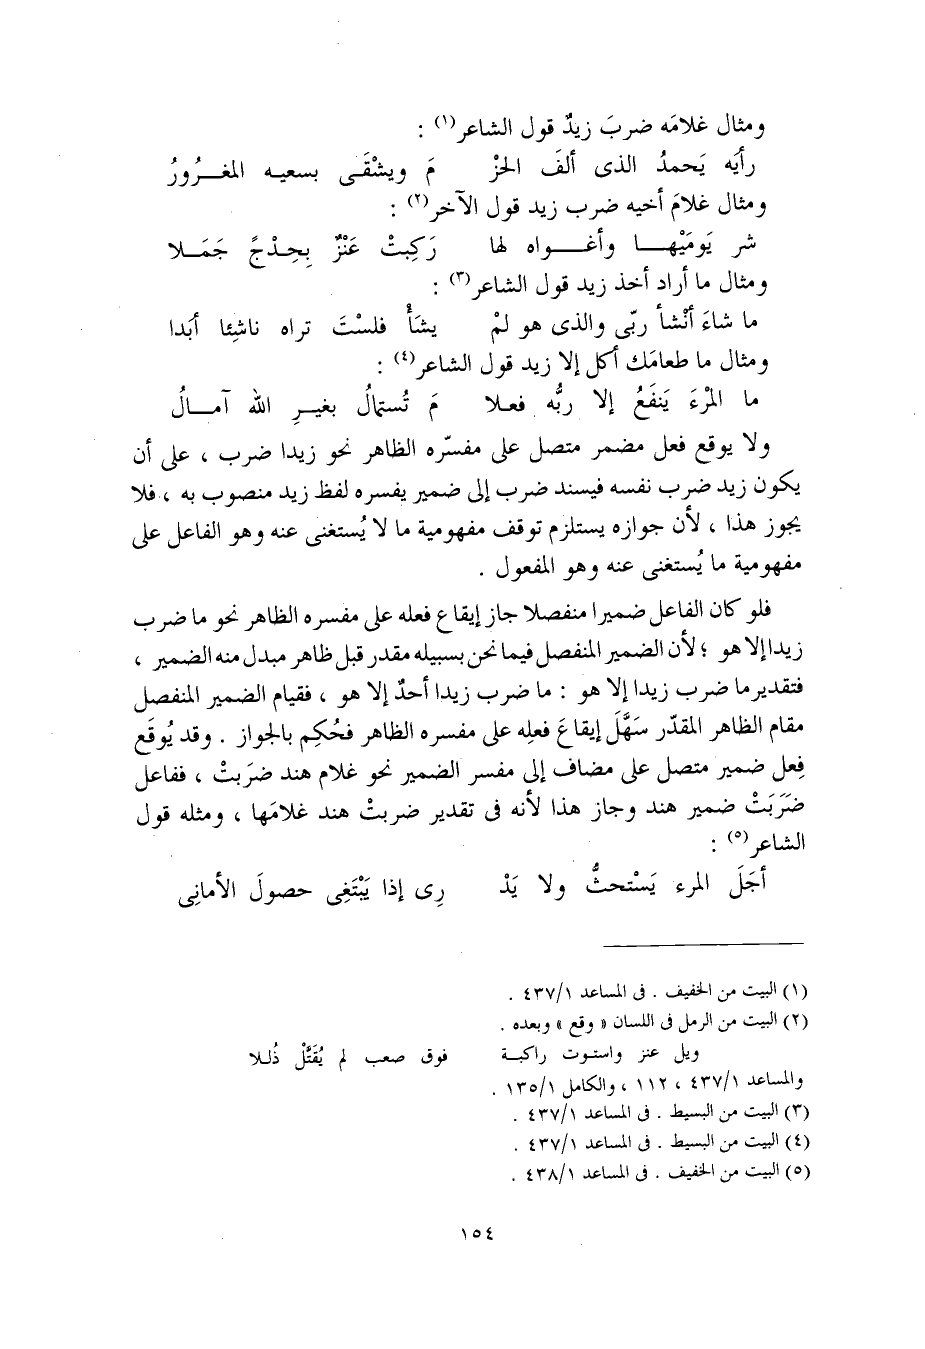 ومثال غلامَه ضربَ زيدٌ قول الشاعر(١) :
رأيَه يَحمدُ الذى ألفَ الحزْ مَ ويشْقَى بسعيه المغرُورُ
ومثال غلامَ أخيه ضرب زيد قول الآخر(٢) :
شر يَومَيْهــا وأغــواه لها رَكِبتْ عَنْزٌ بِحِدْجٍ جَمَـلا
ومثال ما أراد أخذ زيد قول الشاعر(٣) :
ما شاءَ أنْشأ ربّى والذى هو لمْ يشَأْ فلسْتَ تراه ناشِئا أبَدا
ومثال ما طعامَك أكل إلا زيد قول الشاعر(٤) :
ما المْرْءَ يَنفَعُ إلا ربُّه فعلا مَ تُستمالُ بغيرِ الله آمـالُ
ولا يوقع فعل مضمر متصل على مفسّره الظاهر نحو زيدا ضرب ، على أن
يكون زيد ضرب نفسه فيسند ضرب إلى ضمير يفسره لفظ زيد منصوب به ، فلا
يجوز هذا ، لأن جوازه يستلزم توقف مفهومية ما لا يُستغنى عنه وهو الفاعل على
مفهومية ما يُستغنى عنه وهو المفعول .
فلو كان الفاعل ضميرا منفصلا جاز إيقاع فعله على مفسره الظاهر نحو ما ضرب
زيدا إلا هو ؛ لأن الضمير المنفصل فيما نحن بسبيله مقدر قبل ظاهر مبدل منه الضمير ،
فتقدير ما ضرب زيدا إلا هو : ما ضرب زيدا أحدٌ إلا هو ، فقيام الضمير المنفصل
مقام الظاهر المقدّر سَهَّلَ إيقاعَ فعلِه على مفسره الظاهر فحُكِم بالجواز . وقد يُوقَع
فِعل ضمير متصل على مضاف إلى مفسر الضمير نحو غلام هند ضرَبتْ ، ففاعل
ضَرَبَتْ ضمير هند وجاز هذا لأنه فى تقدير ضربتْ هند غلامَها ، ومثله قول
الشاعر(٥) :
أجَلَ المرء يَسْتحثُّ ولا يَدْ رِى إذا يَبْتَغِى حصولَ الأمانِى
(١) البيت من الخفيف . فى المساعد ٤٣٧/١ .
(٢) البيت من الرمل فى اللسان « وقع » وبعده .
ويل عنز واستوت راكبـة فوق صعب لم يُقَتَّلْ ذُلـلا
والمساعد ٤٣٧/١ ، ١١٢ ، والكامل ١٣٥/١ .
(٣) البيت من البسيط . فى المساعد ٤٣٧/١ .
(٤) البيت من البسيط . فى المساعد ٤٣٧/١ .
(٥) البيت من الخفيف . فى المساعد ٤٣٨/١ .
١٥٤